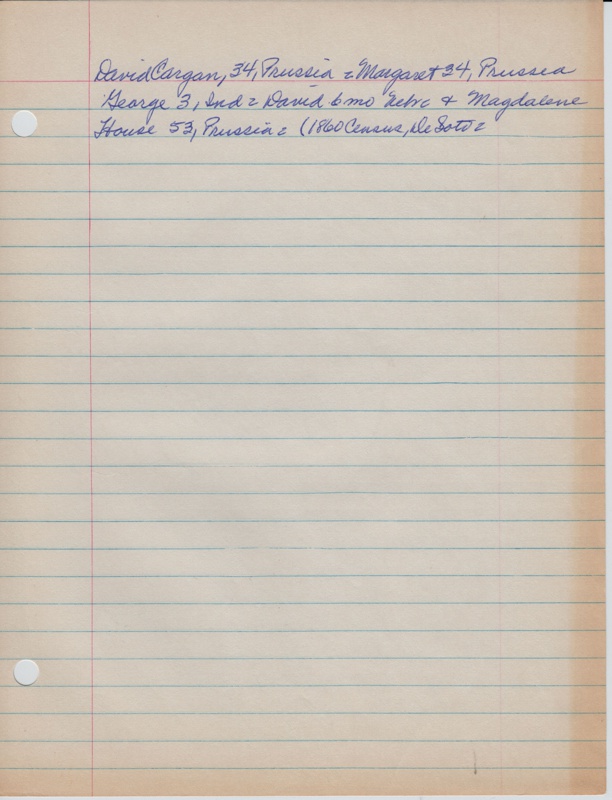 David Cargan, 34, Prussia = Margaret 34, Prussia
George 3, Ind = David 6 mo Nebr. & Magdalene
House 53, Prussia = (1860 Census, DeSoto =